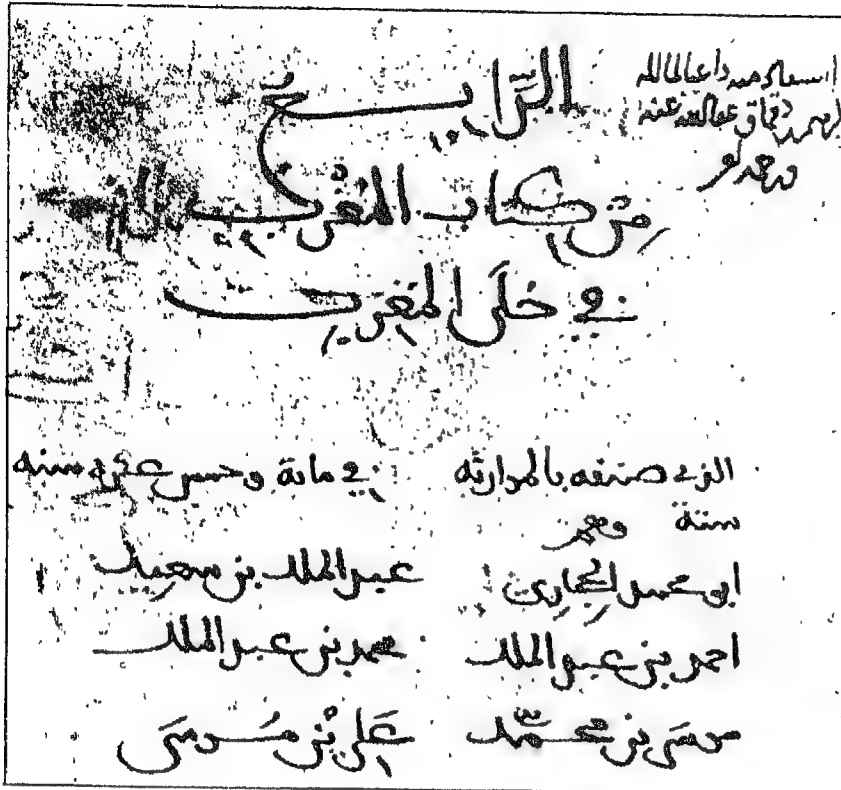 استفاد منه داعيا لمالكه
دقماق عفا الله عنه
الرَّابِعُ
مِنْ كتاب المُغْرِب
في حُلَى المَغرِب
الذي صنفه بالموارثه في مائة وخمس عشرة سنه
ستة وهم
ابو محمد الحِجَاري عبد الملك بن سعيد
احمد بن عبد الملك محمد بن عبد الملك
موسَى بن محمّد عَلي بْن مُوسَى